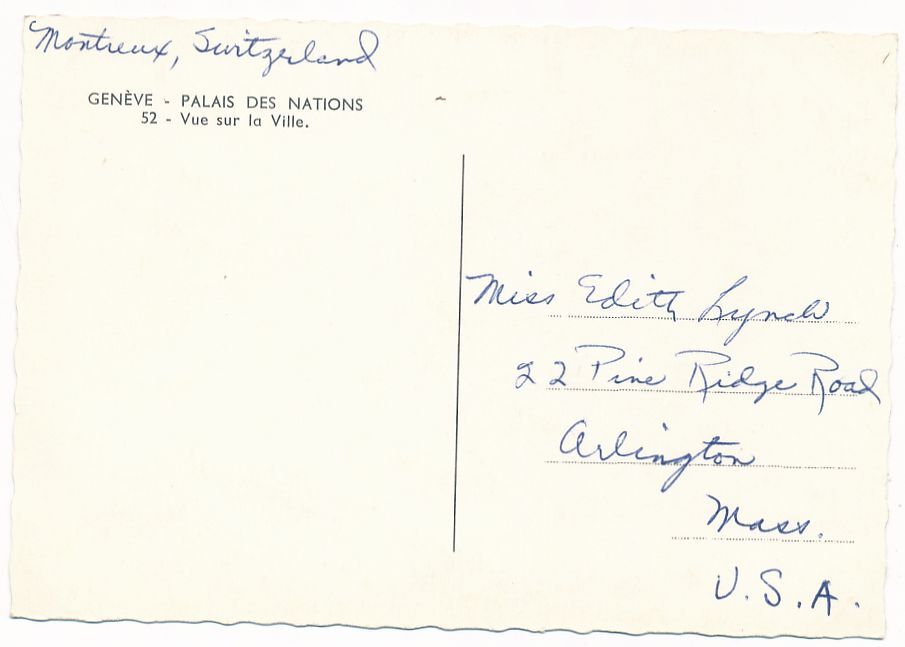 Montreux, Switzerland
GENÈVE - PALAIS DES NATIONS
52 - Vue sur la Ville.
Miss Edith Lynch
22 Pine Ridge Road
Arlington
Mass.
U.S.A.